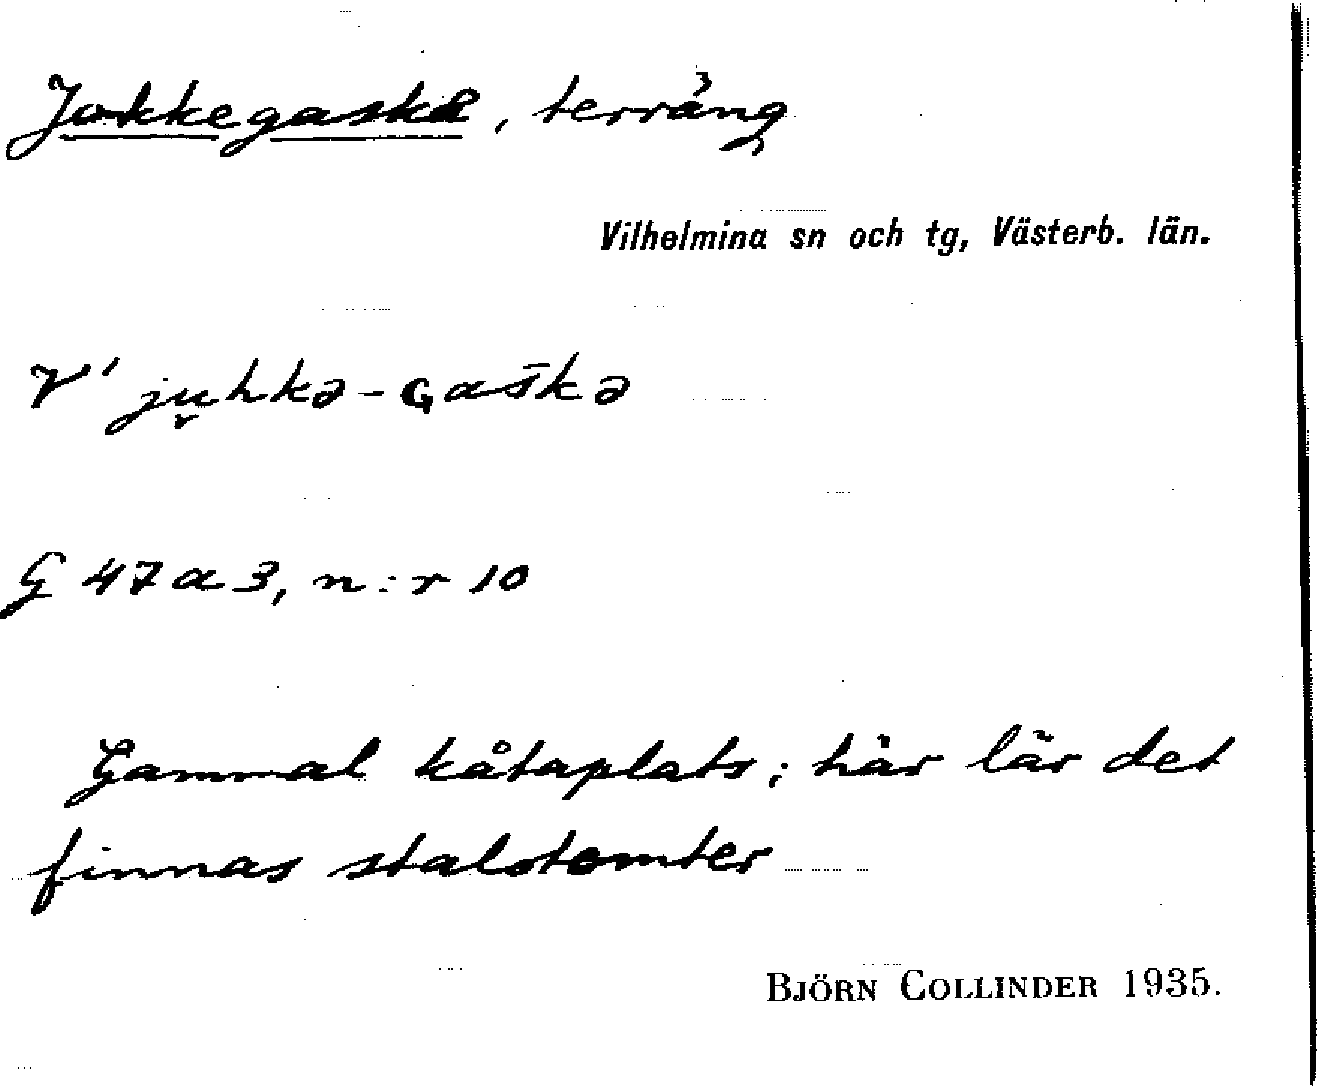 Jokkegaske, terräng
Vilhelmina sn och tg, Västerb. län.
V' ju̬hkə-Gas̄kə
G 47 a 3, n:r 10
Gammal kåtaplats; här lär det
finnas stalotomter
BJÖRN COLLINDER 1935.